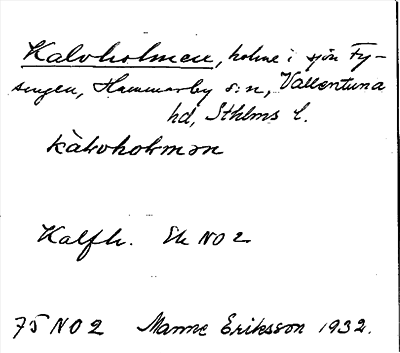 Kalvholmen, holme i sjön Fy-
singen, Hammarby s:n, Vallentuna
hd, Sthlms l.
kàlvholmən
Kalfh. Ek NO 2
75 NO 2 Manne Eriksson 1932.